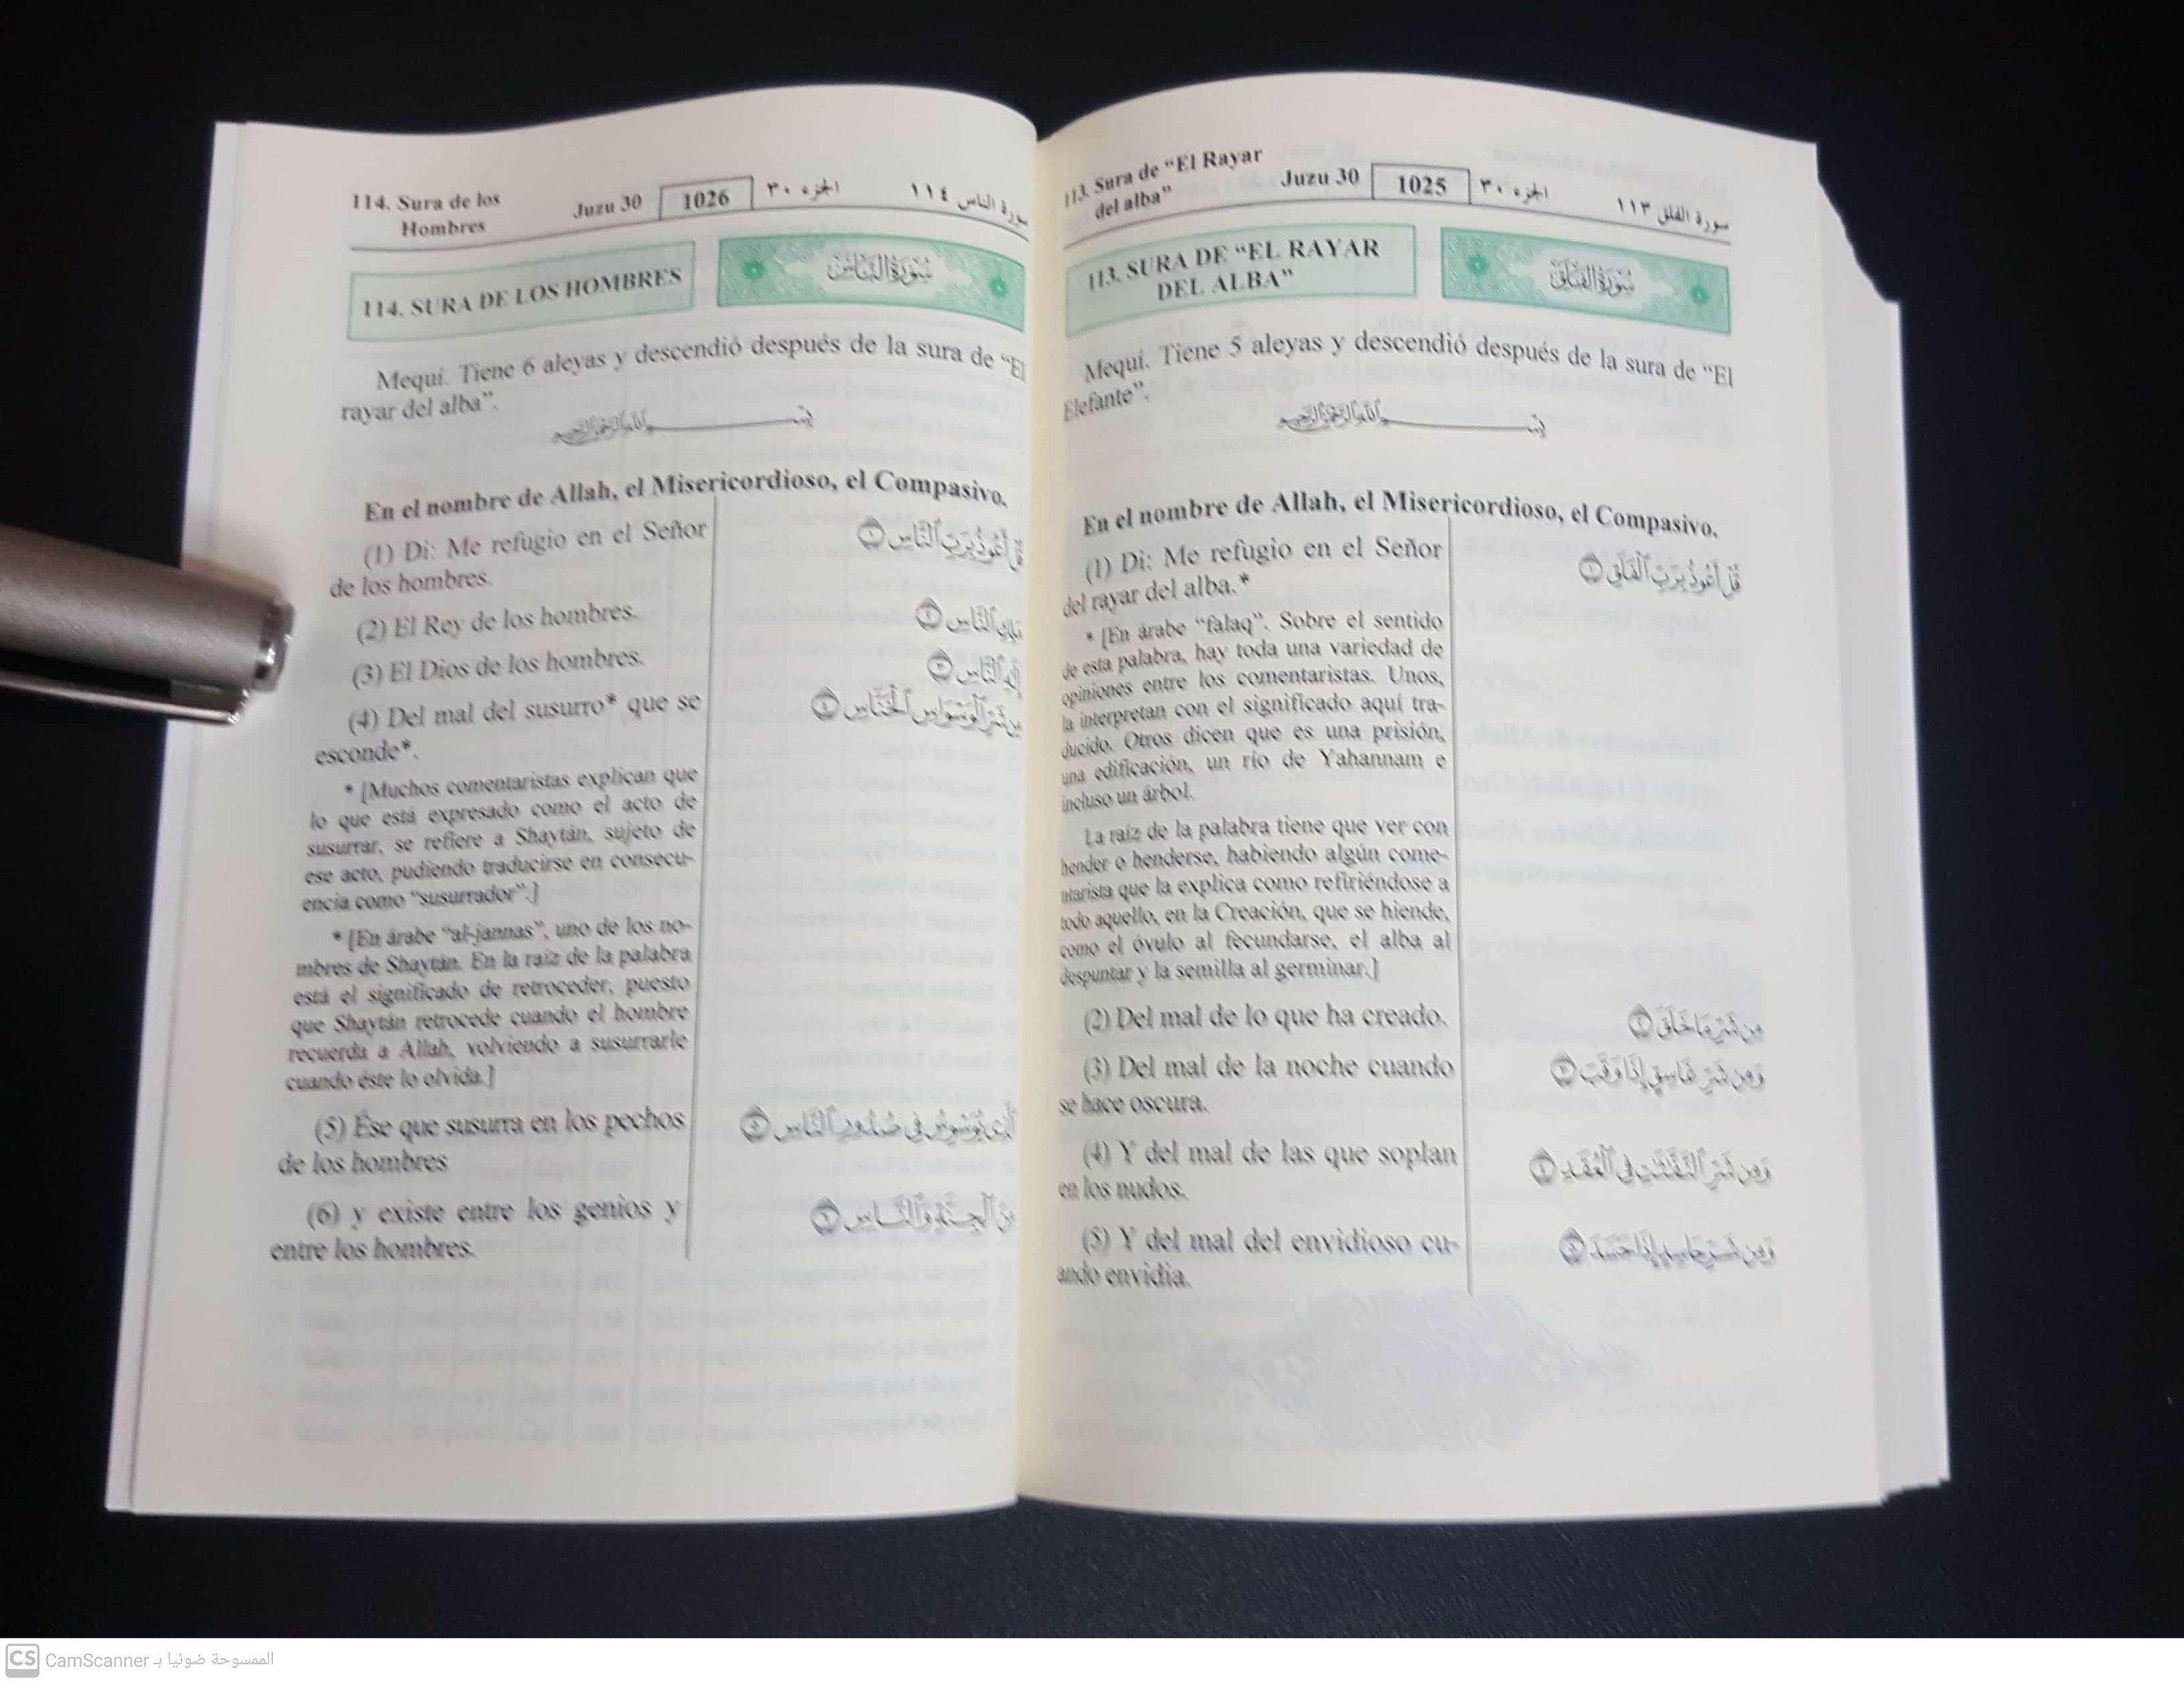 113. Sura de “El Rayar
del alba”
Juzu 30
1025
الجزء ٣٠
سورة الفلق ١١٣
113. SURA DE “EL RAYAR
DEL ALBA”
سُورَةُ الفَلَقِ
Mequí. Tiene 5 aleyas y descendió después de la sura de “El
Elefante”.
بِسْمِ ٱللَّهِ ٱلرَّحْمَٰنِ ٱلرَّحِيمِ
En el nombre de Allah, el Misericordioso, el Compasivo.
(1) Di: Me refugio en el Señor
del rayar del alba.*
* [En árabe “falaq”. Sobre el sentido
de esta palabra, hay toda una variedad de
opiniones entre los comentaristas. Unos,
la interpretan con el significado aquí tra-
ducido. Otros dicen que es una prisión,
una edificación, un río de Yahannam e
incluso un árbol.
La raíz de la palabra tiene que ver con
hender o henderse, habiendo algún come-
ntarista que la explica como refiriéndose a
todo aquello, en la Creación, que se hiende,
como el óvulo al fecundarse, el alba al
despuntar y la semilla al germinar.]
(2) Del mal de lo que ha creado.
(3) Del mal de la noche cuando
se hace oscura.
(4) Y del mal de las que soplan
en los nudos.
(5) Y del mal del envidioso cu-
ando envidia.
قُلْ أَعُوذُ بِرَبِّ ٱلْفَلَقِ ١
مِن شَرِّ مَا خَلَقَ ٢
وَمِن شَرِّ غَاسِقٍ إِذَا وَقَبَ ٣
وَمِن شَرِّ ٱلنَّفَّٰثَٰتِ فِى ٱلْعُقَدِ ٤
وَمِن شَرِّ حَاسِدٍ إِذَا حَسَدَ ٥
114. Sura de los
Hombres
Juzu 30
1026
الجزء ٣٠
سورة الناس ١١٤
114. SURA DE LOS HOMBRES
سُورَةُ النَّاسِ
Mequí. Tiene 6 aleyas y descendió después de la sura de “El
rayar del alba”.
بِسْمِ ٱللَّهِ ٱلرَّحْمَٰنِ ٱلرَّحِيمِ
En el nombre de Allah, el Misericordioso, el Compasivo.
(1) Di: Me refugio en el Señor
de los hombres.
(2) El Rey de los hombres.
(3) El Dios de los hombres.
(4) Del mal del susurro* que se
esconde*.
* [Muchos comentaristas explican que
lo que está expresado como el acto de
susurrar, se refiere a Shaytán, sujeto de
ese acto, pudiendo traducirse en consecu-
encia como “susurrador”.]
* [En árabe “al-jannas”, uno de los no-
mbres de Shaytán. En la raíz de la palabra
está el significado de retroceder, puesto
que Shaytán retrocede cuando el hombre
recuerda a Allah, volviendo a susurrarle
cuando éste lo olvida.]
(5) Ése que susurra en los pechos
de los hombres
(6) y existe entre los genios y
entre los hombres.
قُلْ أَعُوذُ بِرَبِّ ٱلنَّاسِ ١
مَلِكِ ٱلنَّاسِ ٢
إِلَٰهِ ٱلنَّاسِ ٣
مِن شَرِّ ٱلْوَسْوَاسِ ٱلْخَنَّاسِ ٤
ٱلَّذِى يُوَسْوِسُ فِى صُدُورِ ٱلنَّاسِ ٥
مِنَ ٱلْجِنَّةِ وَٱلنَّاسِ ٦
CS CamScanner الممسوحة ضوئيا بـ